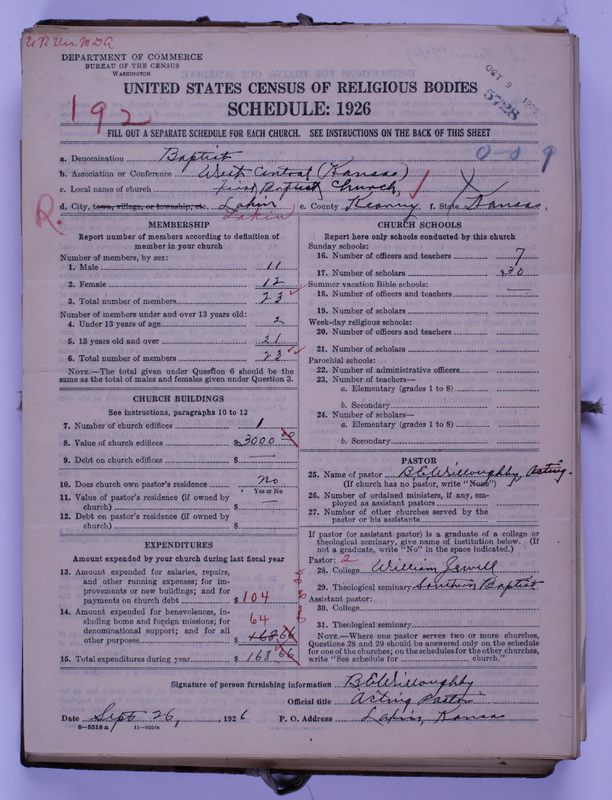 U.R. Ver. M.D.A
DEPARTMENT OF COMMERCE
BUREAU OF THE CENSUS
WASHINGTON
OCT 9
5728
UNITED STATES CENSUS OF RELIGIOUS BODIES
SCHEDULE: 1926
192
FILL OUT A SEPARATE SCHEDULE FOR EACH CHURCH. SEE INSTRUCTIONS ON THE BACK OF THIS SHEET
0-0 9
a. Denomination Baptist
b. Association or Conference West Central (Kansas)
c. Local name of church First Baptist Church,
d. City, town, village, or township, etc. Lakin e. County Kearny f. State Kansas,
R. Lakin
MEMBERSHIP
Report number of members according to definition of
member in your church
Number of members, by sex:
1. Male 11
2. Female 12
3. Total number of members 23
Number of members under and over 13 years old:
4. Under 13 years of age 2
5. 13 years old and over 21
6. Total number of members 23
NOTE.—The total given under Question 6 should be the
same as the total of males and females given under Question 3.
CHURCH BUILDINGS
See instructions, paragraphs 10 to 12
7. Number of church edifices 1
8. Value of church edifices $ 3000 00
9. Debt on church edifices $ —
10. Does church own pastor's residence No
Yes or No
11. Value of pastor's residence (if owned by
church) $ —
12. Debt on pastor's residence (if owned by
church) $
EXPENDITURES
Amount expended by your church during last fiscal year
13. Amount expended for salaries, repairs,
and other running expenses; for im-
provements or new buildings; and for
payments on church debt $ 104
14. Amount expended for benevolences, in-
cluding home and foreign missions; for
denominational support; and for all
other purposes $ 168.66
64
15. Total expenditures during year $ 168 66
CHURCH SCHOOLS
Report here only schools conducted by this church
Sunday schools:
16. Number of officers and teachers 7
17. Number of scholars 30
Summer vacation Bible schools:
18. Number of officers and teachers —
19. Number of scholars
Week-day religious schools:
20. Number of officers and teachers
21. Number of scholars
Parochial schools:
22. Number of administrative officers
23. Number of teachers—
a. Elementary (grades 1 to 8)
b. Secondary
24. Number of scholars—
a. Elementary (grades 1 to 8)
b. Secondary
PASTOR
25. Name of pastor B.E. Willoughby Acting.
(If church has no pastor, write "None")
26. Number of ordained ministers, if any, em-
ployed as assistant pastors
27. Number of other churches served by the
pastor or his assistants
If pastor (or assistant pastor) is a graduate of a college or
theological seminary, give name of institution below. (If
not a graduate, write "No" in the space indicated.)
Pastor: 2
28. College William Jewell
29. Theological seminary Southern Baptist
Assistant pastor:
30. College
31. Theological seminary
NOTE.—Where one pastor serves two or more churches,
Questions 28 and 29 should be answered only on the schedule
for one of the churches; on the schedules for the other churches,
write "See schedule for church."
Signature of person furnishing information B.E. Willoughby
Official title Acting Pastor
Date Sept 26, , 1926 P. O. Address Lakin, Kansas
8—5518 a